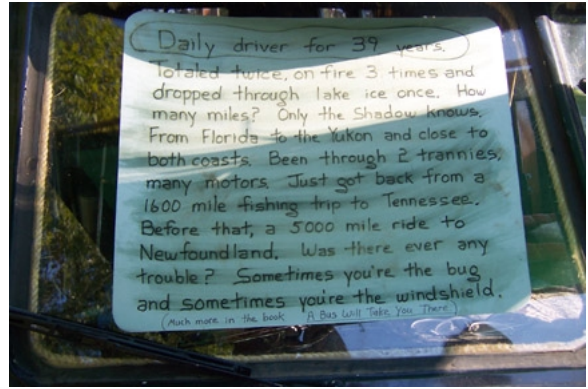 Daily driver for 39 years.
Totaled twice, on fire 3 times and
dropped through lake ice once. How
many miles? Only the Shadow knows.
From Florida to the Yukon and close to
both coasts. Been through 2 trannies,
many motors. Just got back from a
1600 mile fishing trip to Tennessee.
Before that, a 5000 mile ride to
Newfoundland. Was there ever any
trouble? Sometimes you're the bug
and sometimes you're the windshield.
(Much more in the book A Bus Will Take You There)